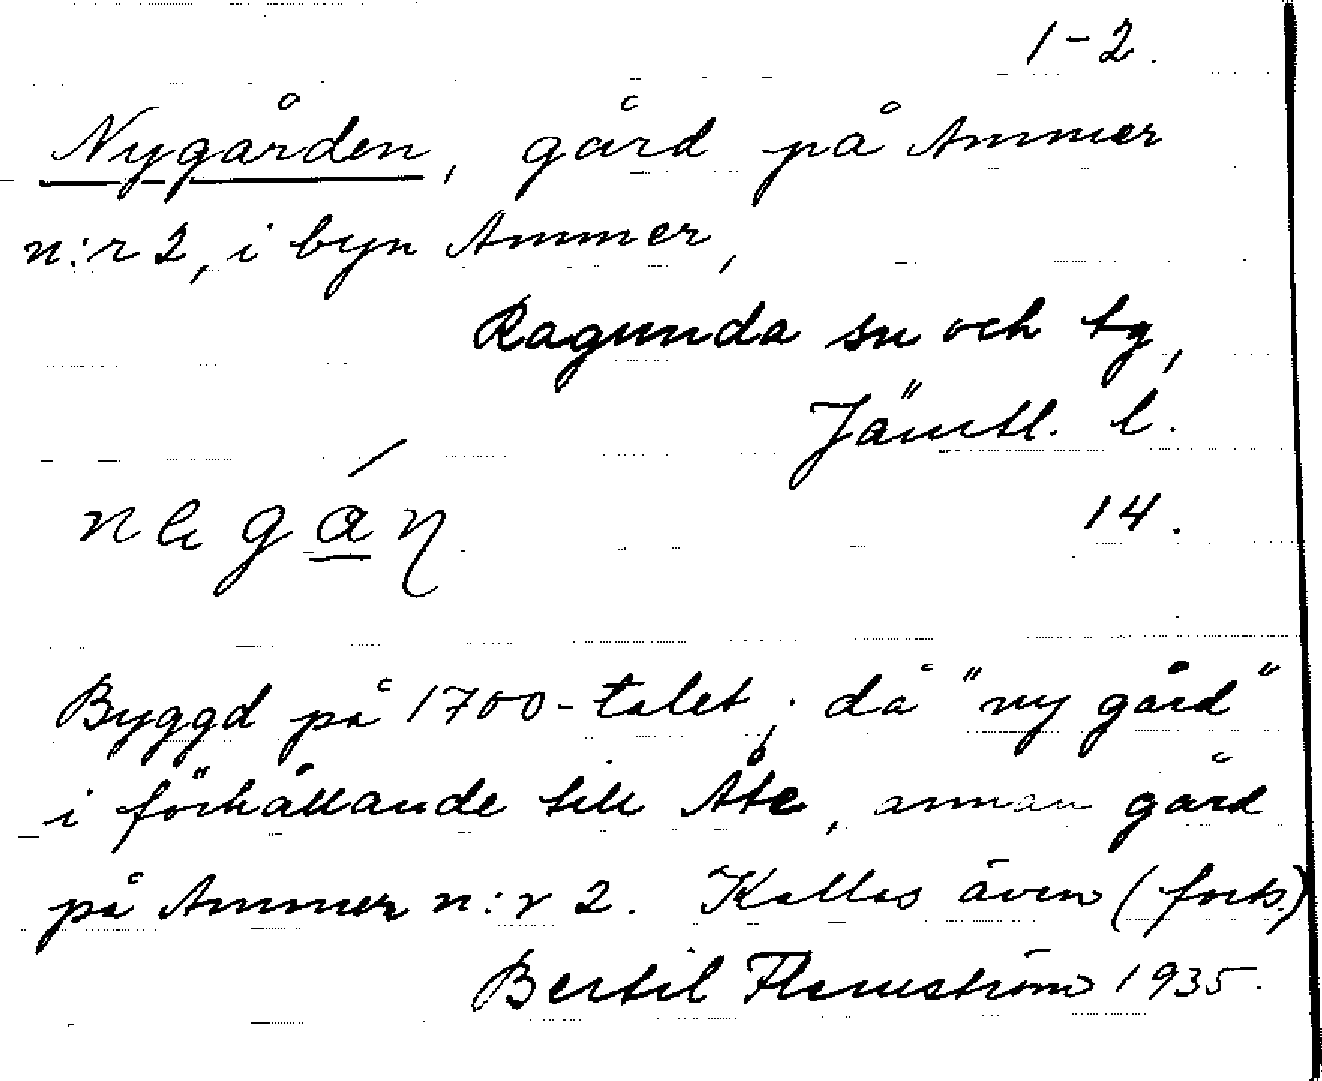 1-2.
Nygården, gård på Ammer
n:r 2, i byn Ammer,
Ragunda sn och tg,
Jämtl. l.
14.
Byggd på 1700-talet; då "ny gård"
i förhållande till Åte, annan gård
på Ammer n:r 2. Kallas även (forts.)
Bertil Flemström 1935.